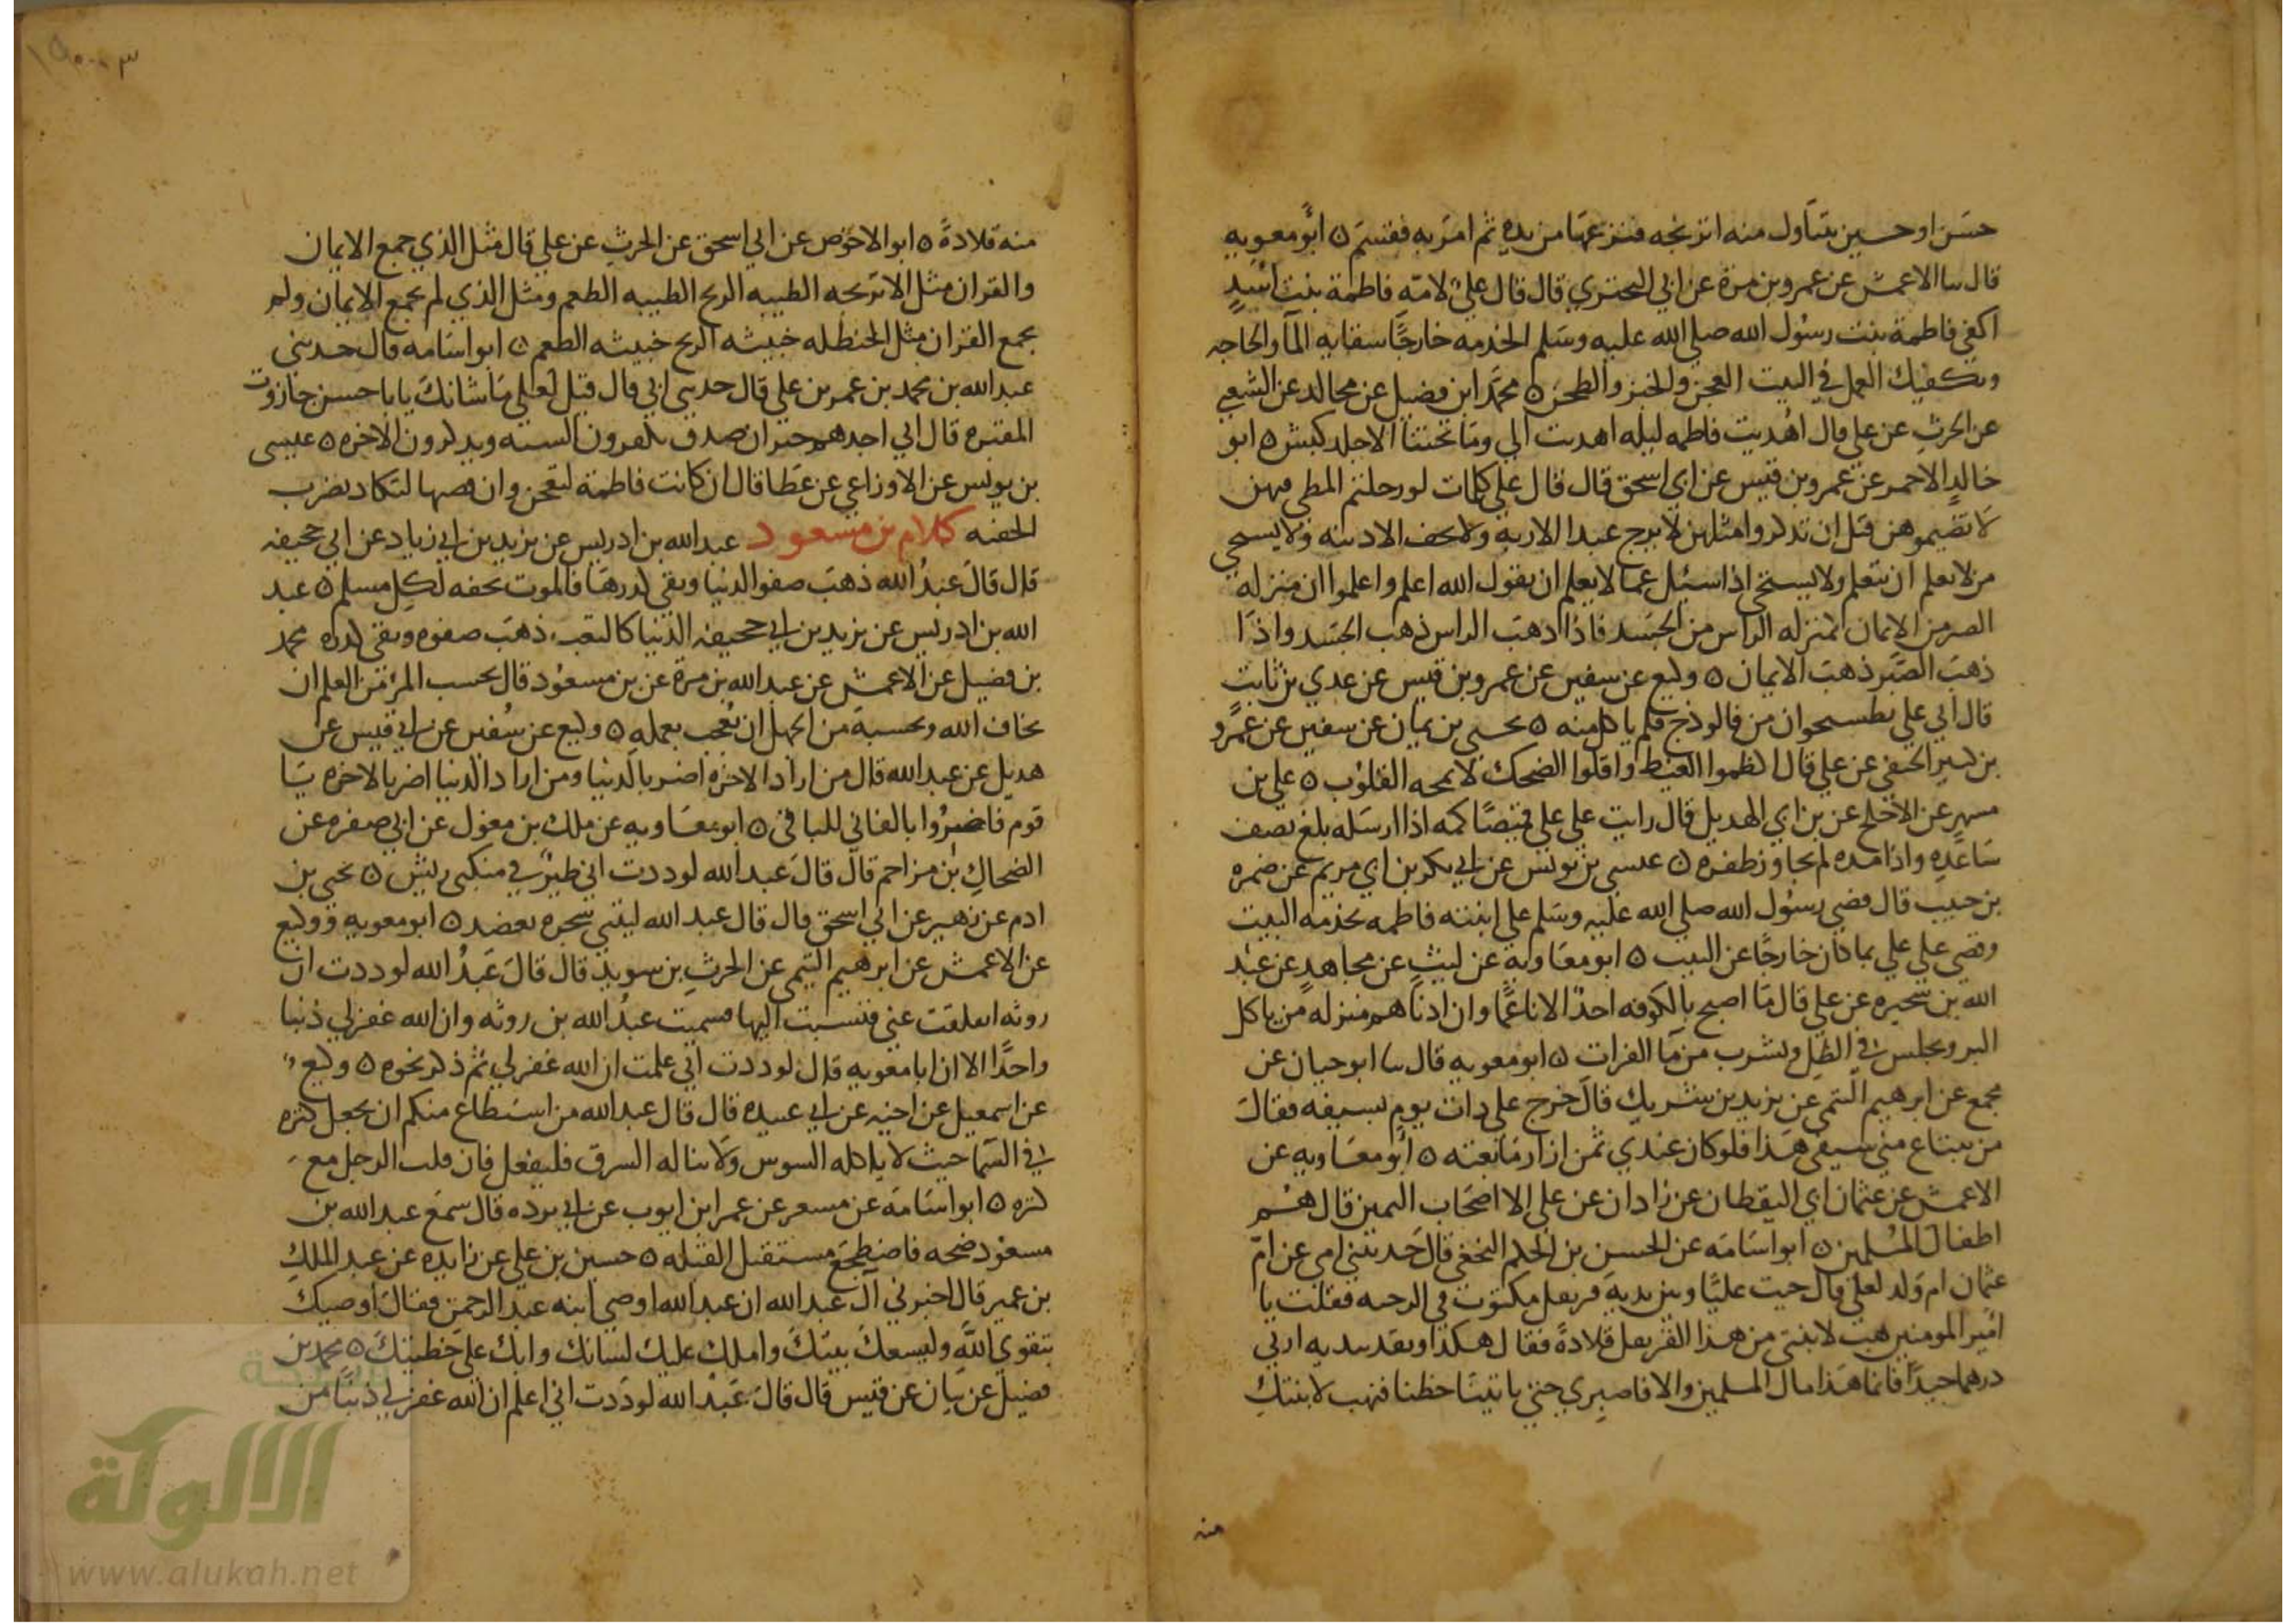 حسَن او حسين يتناول منه اترنجه فنزعها من يده ثم امرَ به فقسَم ٥ ابو معويه
قال سا الاعمش عن عمرو بن مرة عن ابي البختري قال قال عليٌ لامّه فاطمة بنت اسَدٍ
اكفي فاطمة بنت رسُول الله صلى الله عليه وسَلم الخدمه خارجًا سقايه المآ والحاجه
وتكفيك العمل في البيت العجن والخبز والطحن ٥ محمَّد ابن فضيل عن مجالد عن الشعبي
عن الحرث عن علي قال اهُديت فاطمه ليله اهديت الي ومَا تحتنا الا جلد كبش ٥ ابو
خالدٍ الاحمر عن عمرو بن قيس عن ابي اسحق قال قال علي كلمات لو رحلتم المطي فيهن
لانضيتموهن قبل ان تدركوا مثلهن لا يرج عبد الا ربه ولا يخف الا ذنبه ولا يستحي
من لا يعلم ان يتعلم ولا يستحي اذا سئل عما لا يعلم ان يقول الله اعلم واعلموا ان منزله
الصبر من الايمان كمنزله الراس من الجسَد فاذا ذهبَ الراس ذهب الجسَد واذا
ذهبَ الصَّبر ذهبَ الايمان ٥ وكيع عن سفين عن عمرو بن قيس عن عدي بن ثابت
قال اتي علي بطست خوان من فالوذج فلم ياكل منه ٥ يحيى بن يمان عن سفين عن عمرٍو
بن كثير الحنفي عن علي قال اكظموا الغيظ واقلوا الضحك لا تمجه القلوُب ٥ علي بن
مسهرٍ عن الاجلح عن بن ابي الهديل قال رايت على علي قميصًا كمه اذا ارسَله بلغ نصف
سَاعدِه واذا مده لم يجاوز ظفره ٥ عيسى بن يونس عن ابي بكر بن ابي مريم عن ضمره
بن حبيب قال قضى رسُول الله صلى الله عليه وسَلم على ابنته فاطمه بخدمه البيت
وقضى على علي بما كان خارجًا عن البيت ٥ ابو معَاوية عن ليثٍ عن مجاهدٍ عن عبْد
الله بن سخبره عن علي قال مَا اصبح بالكوفه احدٌ الا ناعمًا وان ادناهم منزله من ياكل
البر ويجلس في الظل ويشرب من مَا الفرات ٥ ابو معويه قال سا ابو حيان عن
مجمع عن ابرهيم التمي عن يزيد بن شريكٍ قالَ خرج علي ذات يومٍ بسيفه فقالَ
من يبتاع مني سيفي هَذا فلو كان عندي ثمن ازار مَا بعته ٥ ابو معَاويه عن
الاعمش عن عثمان ابي اليقظان عن زادان عن علي الا اصحَاب اليمين قال هُم
اطفالَ المسُلمين ٥ ابو اسَامَه عن الحسن بن الحكم النخعي قالَ حَدثتني امي عن امّ
عثمان ام وَلد لعلي قال جيت عليًا وبين يديهَ قرنفل مكبوب في الرحبه فقلت يا
اميَر المومنين هب لابنتي من هذا القرنفل قلادةً فقال هكذا ونقد بيديه ارني
درهما جيدًا فانما هَذا مال المسلمين والا فاصبرِي حتى ياتينَا حظنا فنهب لابنتكِ
منه
منه قلادةً ٥ ابو الاحَوص عن ابي اسحق عن الحرثِ عن علي قال مثل الذي جمع الايمان
والقران مثل الاترنجه الطيبه الريح الطيبه الطعم ومثل الذي لم يجمع الايمان ولم
يجمع القران مثل الحنظله خبيثه الريح خبيثه الطعم ٥ ابو اسَامه قال حدثني
عبد الله بن محمد بن عمر بن علي قال حدثني ابي قال قيل لعلي مَا شانكَ يابا حسن جاورت
المقبره قال اني اجدهم جيران صدق يكفرون السيه ويذكرون الاخره ٥ عيسى
بن يونس عن الاوزاعي عن عَطا قال ان كانت فاطمة لتعجن وان قصهَا لتكاد تضرب
الجفنه كلام بن مسعود عبد الله بن ادريس عن يزيد بن ابي زياد عن ابي جحيفه
قال قالَ عَبدُ الله ذهبَ صفو الدنيا وبقي كدرهَا فالموت تحفه لكِل مسلم ٥ عبد
الله بن ادريس عن يزيد بن ابي جحيفه الدنيا كالثغب ذهبَ صفوه وبقي كدره محمد
بن فضيل عن الاعمش عن عبد الله بن مرة عن بن مسعوُد قال بحسب المرٰ من العلم ان
يخاف الله وبحسبهَ من الجهل ان يُعجب بعملهِ ٥ وكيع عن سُفين عن ابي قيس عن
هديل عن عبد الله قال من ارَاد الاخره اضر بالدنيا ومن ارَاد الدنيا اضر بالاخره يَا
قوم فاضرُوا بالفاني للباقي ٥ ابو معَاويه عن ملك بن مغول عن ابي صفره عن
الضحاكِ بْن مزاحم قالَ قالَ عَبد الله لوددت اني طيرٌ في منكبي ريش ٥ يحيى بن
ادم عن زهير عن ابي اسحق قال قال عبد الله ليتني شجره تعضد ٥ ابو معويه ووكيع
عن الاعمش عن ابرهيم التيمي عن الحرثِ بن سويد قال قالَ عَبدُ الله لوددت ان
روثه انفلقت عني فنسبت اليها فسميت عبدُ الله بن روثه وان الله غفر لي ذنبا
واحدًا الا ان ابا معويه قال لوددت اني علمت ان الله غفر لي ثم ذكر نحوه ٥ وكيع
عن اسمعيل عن اخيه عن ابي عبيده قال قال عبد الله من استطاع منكم ان يجعل كنزه
في السَما حيث لا ياكله السوس ولا يناله السرق فليفعل فان قلب الرجل مع
كنزه ٥ ابو اسَامَه عن مسعر عن عمر ابن ايوب عن ابي برده قال سمعَ عبد الله بن
مسعوُد ضجه فاضطجعَ مستقبل القبله ٥ حسين بن علي عن زايده عن عبد الملكِ
بن عمير قال اخبرني آل عَبد الله ان عبد الله اوصى ابنه عبد الرحمن فقالَ اوصيك
بتقوي اللهَِ وليسعكَ بيتكَ واملك عليك لسَانك وابك على خطيتكَ ٥ محمد بن
فضيل عن بيان عن قيس قال قالَ عَبْد الله لودَدت اني اعلم ان الله غفر لي ذنبًا من
الألوكة
www.alukah.net